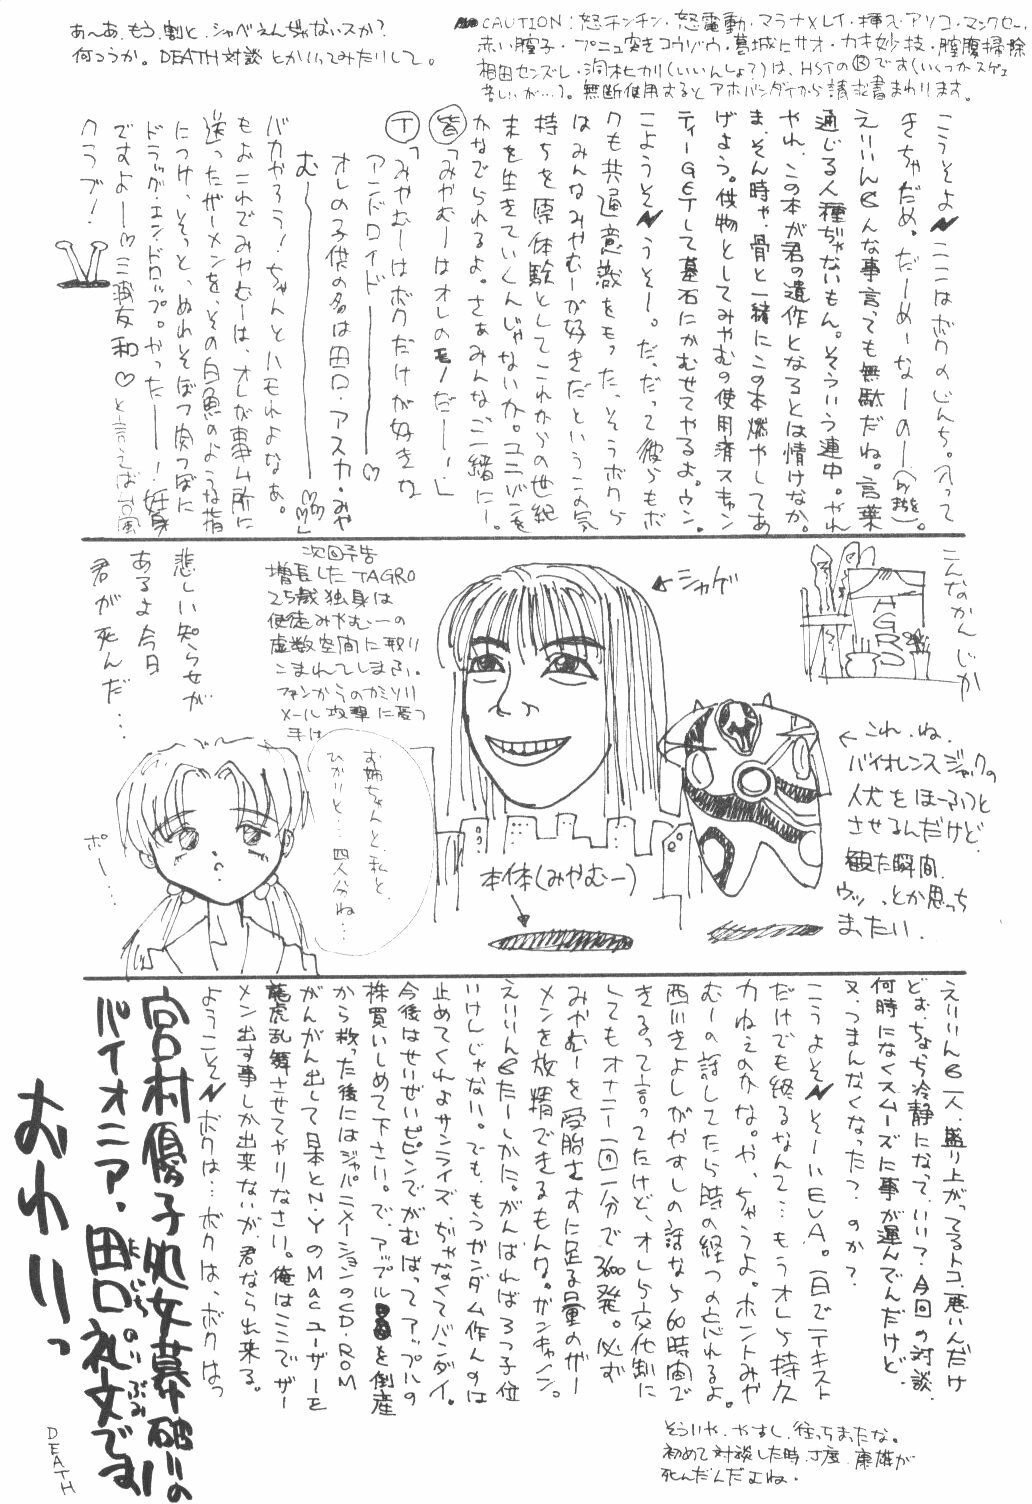 あ〜あ、もう、割と、シャベえんぢゃないスか?
何つうか。DEATH対談とかいってみたりして。
CAUTION:怒チンチン・怒電動・マラナメレイ・挿入・アソコ・マンクセー・
赤い膣子・プニュ突きコウゾウ・葛城にサオ・カキ妙技・膣腹掃除
相田センズレ・洞木ヒカリ(いいんしょ?)は、HSTのⓇです(いくつかスゲェ
苦しいが…)。無断使用するとアホバンダイから請求書まわります。
こうそよ〜ここはボクのじんち。入って
きちゃだめ。だーめーなーのー(by まを)。
えりりん6んな事言っても無駄だね。言葉
通じる人種ぢゃないもん。そういう連中。やれ
やれ、この本が君の遺作となるとは情けなか。
ま、そん時ゃ、骨と一緒にこの本燃やしてあ
げよう。供物としてみやむの使用済スキャン
ティーGETして墓石にかむせてやるよ。ウン。
こようそ〜うそー。だ、だって彼らもボ
クも共通意識をもった、そうボクら
はみんなみやむーが好きだというこの気
持ちを原体験としてこれからの世紀
末を生きていくんじゃないか。ユニバンを
かなでられるよ。さぁみんな、ご一緒にー。
皆「みやむーはオレのモノだーー!」
T「みやむーはボクだけが好きな
アンドロイド――♡
オレの子供の名は田口・アスカ・みや
むー――♡♡♡」
バカやろう!ちゃんとハモれよなぁ。
もぉこれでみやむーは、オレが事ム所に
送ったザーメンを、その白魚のような指
につけ、そっと、ぬれそぼつ肉つぼに
ドラッグ・エンドロップ。やったー――!妊娠
ですよー――♡三波友和♡と言えば台風
クラブ!
こんなかんじか
AGRO
シャゲ
次回予告
増長したTAGRO
25歳独身は
使徒みやむーの
虚数空間に取り
こまれてしまふ。
ファンからのカミソリ
メール攻撃に憂つ
手は
悲しい知らせが
あるよ今日
君が死んだ…
お姉ちゃんと、私と、
ひかりと…四人分ね…
ポー…
本体(みやむー)
←これ、ね、
バイオレンスジャックの
人犬をほーふつと
させるんだけど、
観た瞬間、
ウッ…っとか思っち
まったい。
えりりん6一人、盛り上がってるトコ悪いんだけ
ど、ちょち冷静になって、いい?今回の対談、
何時になくスムーズに事が運んでんだけど、
又、つまんなくなった?のか?
こうよそ〜そーいEVA。一日でテキスト
だけでも終るなんて…もうオレら持久
力ねぇのかな。や、ちゃうよ。ホントみや
むーの話してたら時の経つの忘れるよ。
西川きよしがやすしの話なら60時間で
きるって言ってたけど、オレら交代制に
してもオナニー一回一分で3600発。必ず
みやむーを受胎さすに足る量のザー
メンを放精できるもんな。ガンキャノン。
えりりん6たーしかに。がんばればろっ子位
いけんじゃない。でも、もうガンダム作んのは
止めてくれよサンライズ、ぢゃなくてバンダイ。
今後はせいぜいピピンでがむばってアップルの
株買いしめて下さい。で、アップルを倒産
から救った後にはジャパニメーションのCD-ROM
がんがん出して日本とN.Y.のMacユーザーを
龍虎乱舞させてやりなさい。俺はここでザー
メン出す事しか出来ないが、君なら出来る。
ようこそ〜ボクは…ボクは、ボクはっ
宮村優子処女幕破りの
パイオニア、田口礼文です
おわりっ
DEATH
そういや、やすし、往っちまったな。
初めて対談した時、丁度、康雄が
死んだんだよね。